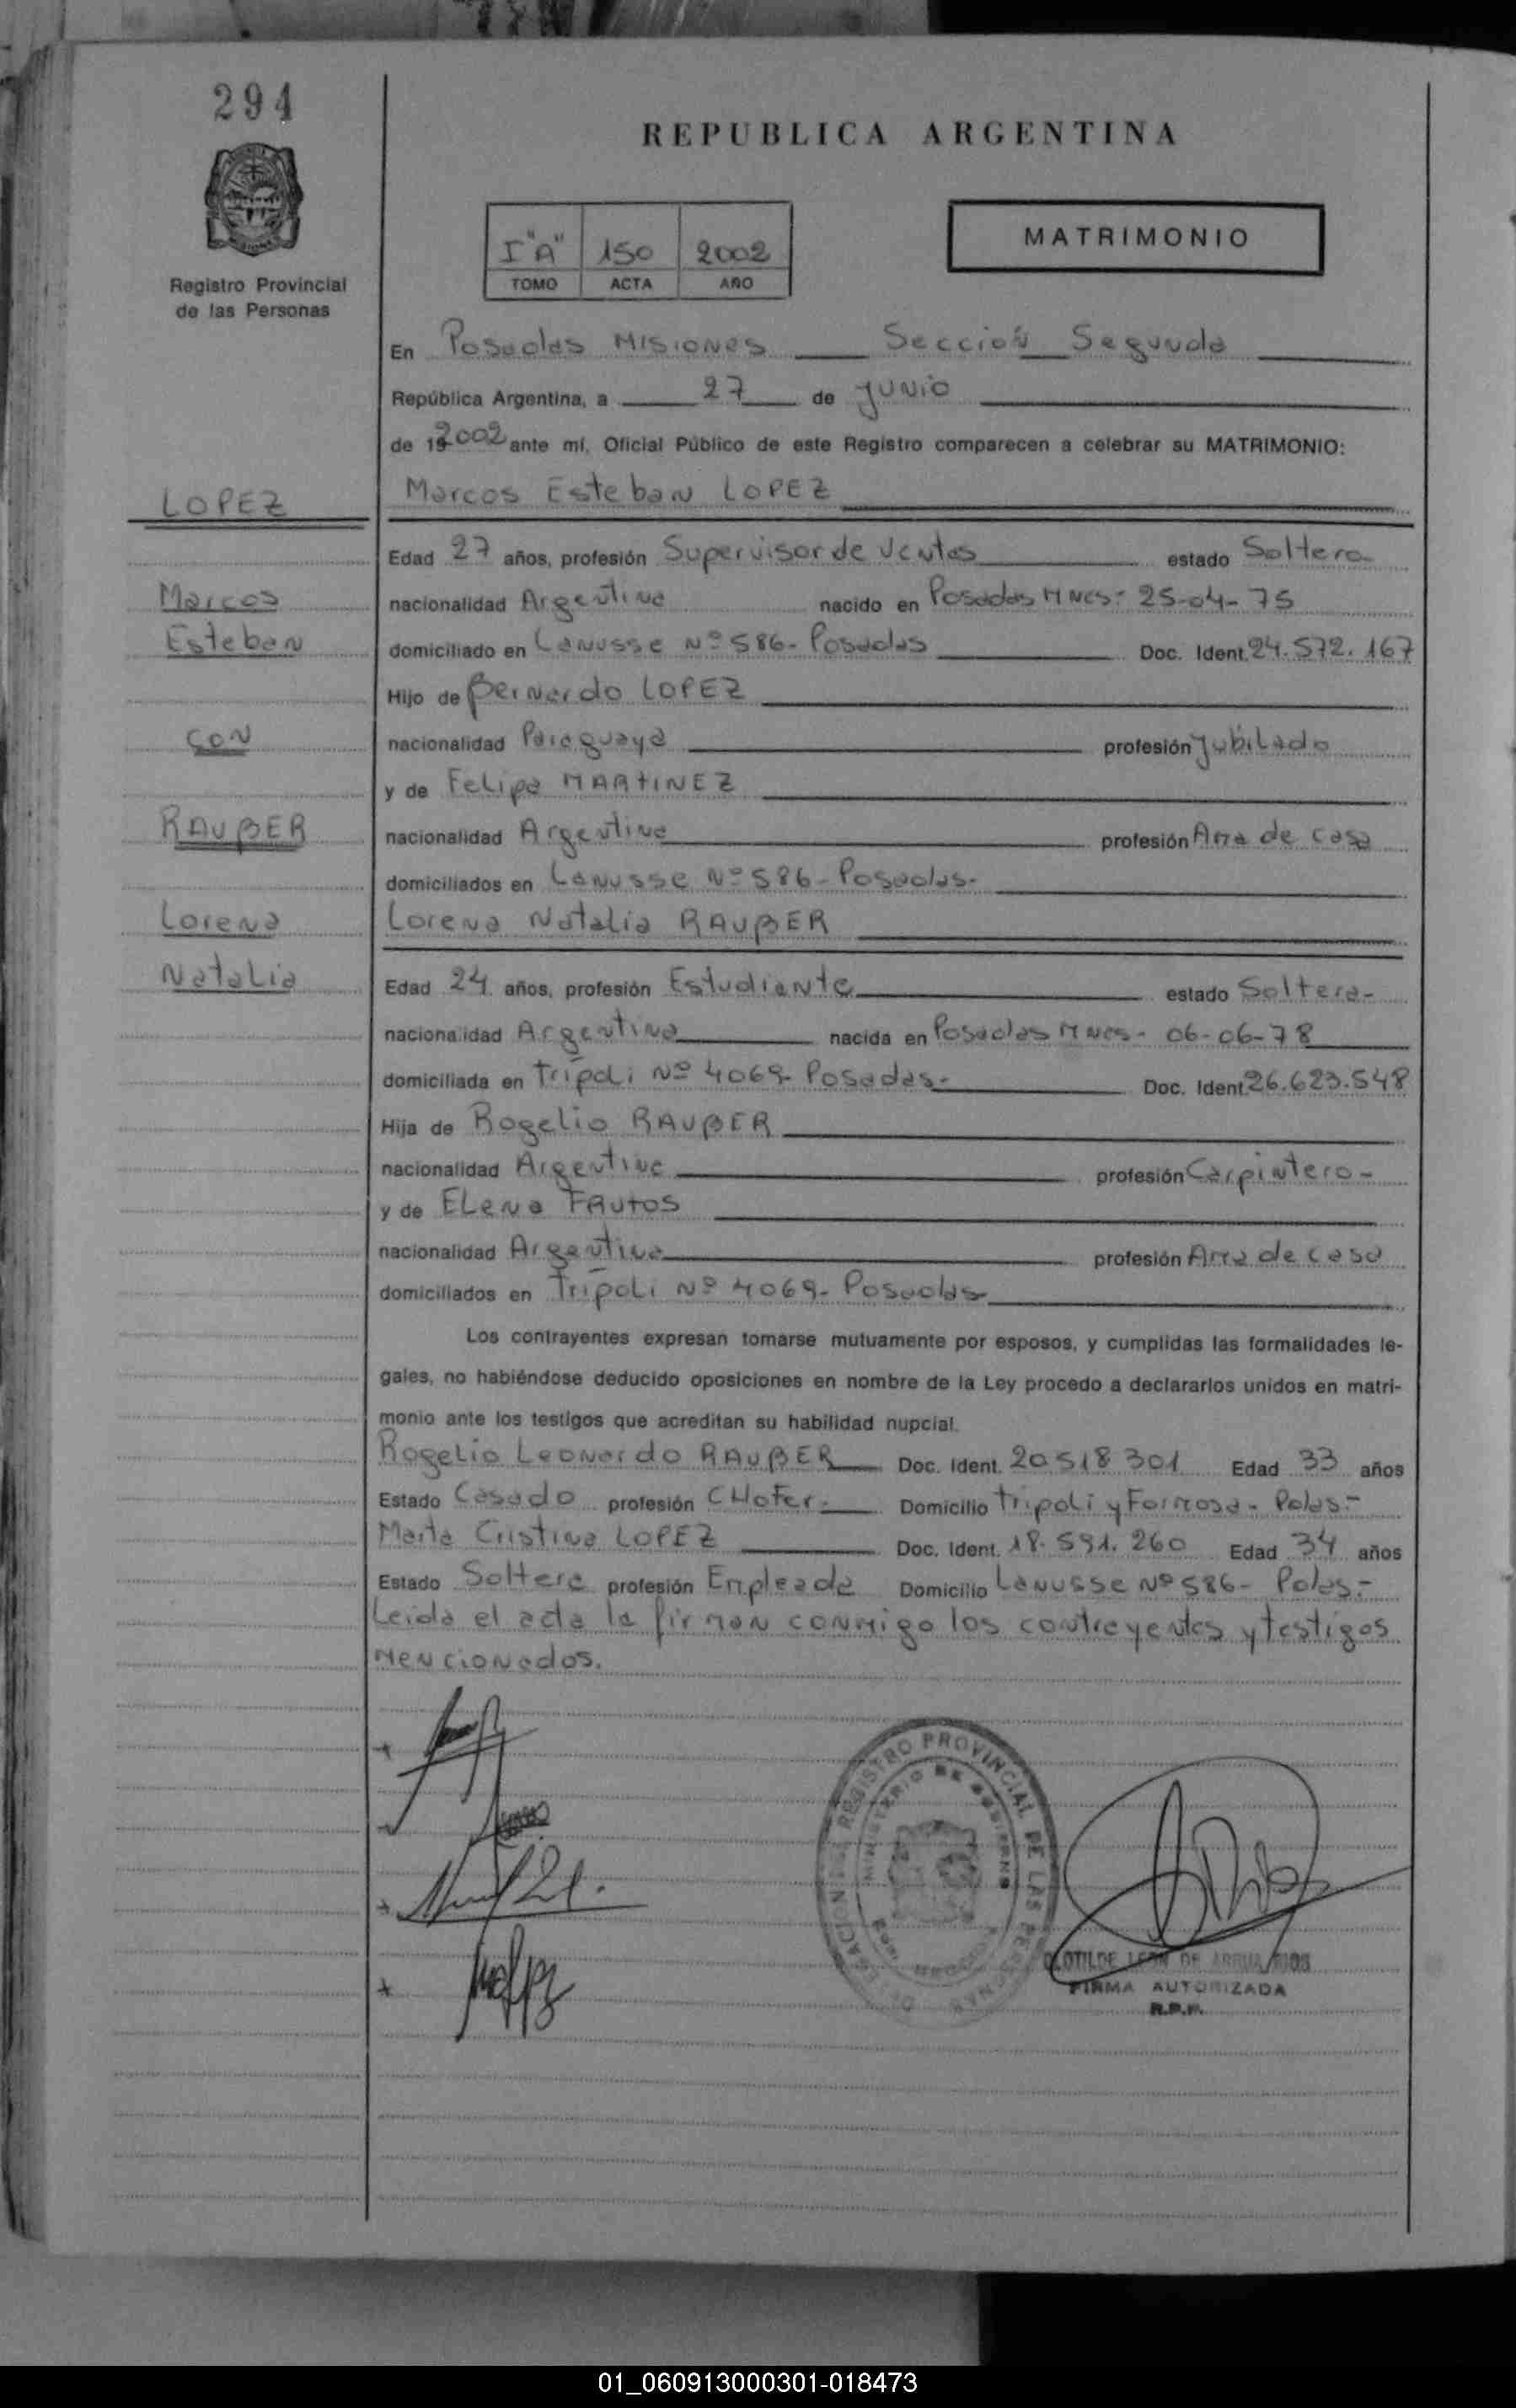 294
REPUBLICA ARGENTINA
I "A" 150 2002
TOMO ACTA AÑO
MATRIMONIO
Registro Provincial
de las Personas
En Posadas Misiones Sección Segunda
República Argentina, a 27 de Junio
de 192002 ante mí, Oficial Público de este Registro comparecen a celebrar su MATRIMONIO:
LOPEZ
Marcos Esteban LOPEZ
Edad 27 años, profesión Supervisor de Ventas estado Soltero
Marcos
nacionalidad Argentina nacido en Posadas Mnes- 25-04-75
Esteban
domiciliado en Lanusse Nº 586- Posadas Doc. Ident. 24.572.167
Hijo de Bernardo LOPEZ
CON
nacionalidad Paraguaya profesión Jubilado
y de Felipa MARTINEZ
RAUBER
nacionalidad Argentina profesión Ama de casa
domiciliados en Lanusse Nº 586- Posadas-
Lorena
Lorena Natalia RAUBER
Natalia
Edad 24 años, profesión Estudiante estado Soltera-
nacionalidad Argentina nacida en Posadas Mnes- 06-06-78
domiciliada en Trípoli Nº 4069- Posadas- Doc. Ident. 26.623.548
Hija de Rogelio RAUBER
nacionalidad Argentina profesión Carpintero-
y de Elena FRUTOS
nacionalidad Argentina profesión Ama de casa
domiciliados en Trípoli Nº 4069- Posadas-
Los contrayentes expresan tomarse mutuamente por esposos, y cumplidas las formalidades le-
gales, no habiéndose deducido oposiciones en nombre de la Ley procedo a declararlos unidos en matri-
monio ante los testigos que acreditan su habilidad nupcial.
Rogelio Leonardo RAUBER Doc. Ident. 20.518.301 Edad 33 años
Estado Casado profesión CHofer- Domicilio Tripoli y Formosa- Pdas.-
Marta Cristina LOPEZ Doc. Ident. 18.591.260 Edad 34 años
Estado Soltera profesión Empleada Domicilio Lanusse Nº 586- Pdas.-
Leida el acta la firman conmigo los contrayentes y testigos
mencionados.
REGISTRO PROVINCIAL DE LAS PERSONAS
MINISTERIO DE GOBIERNO
CLOTILDE LEON DE
FIRMA AUTORIZADA
R.P.P.
01_060913000301-018473